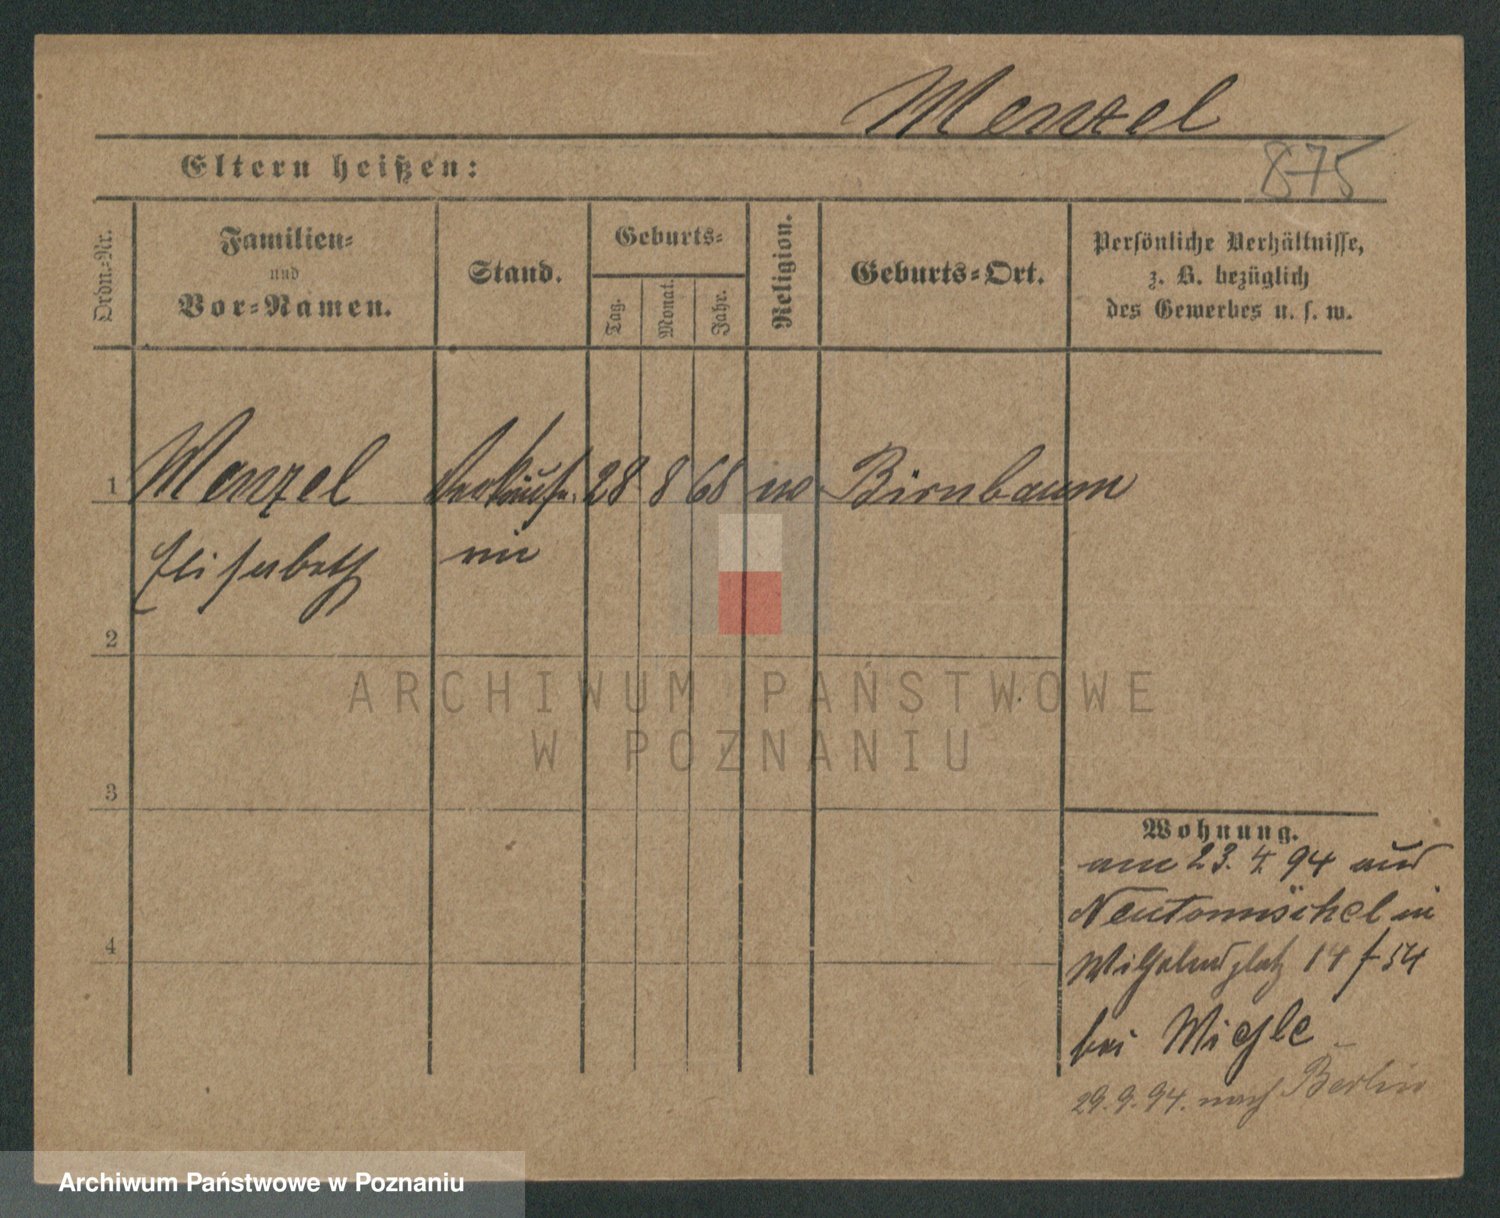 Menzel
875
Eltern heißen:
Ordn.-Nr.
Familien-
und
Vor-Namen.
Stand.
Geburts-
Tag.
Monat.
Jahr.
Religion.
Geburts-Ort.
Persönliche Verhältnisse,
z. B. bezüglich
des Gewerbes u. s. w.
1 Menzel Verkäufe- 28 8 68 ev Birnbaum
Elisabeth rin
2
3
4
Wohnung.
am 23. 4. 94 aus
in
14
bei Wichle
29. 9. 94. nach Berlin
ARCHIWUM PAŃSTWOWE
W POZNANIU
Archiwum Państwowe w Poznaniu